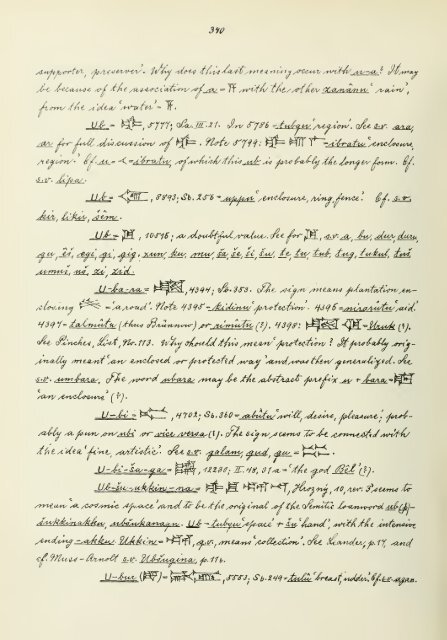 340
supporter, preserver'. Why does this last meaning occur with u-a? It may
be because of the association of a = 𒀀 with the other zanânu 'rain',
from the idea 'water' – 𒀀.
Ub = , 5777; Sa. III. 21. In 5786 = tubqu 'region'. See s.v. ara,
ar for full discussion of . Note 5794: = ibratu 'enclosure,
region'. Cf. u = 𒌋 = ibratu, of which this ub is probably the longer form. Cf.
s.v. lipa.
Ub = , 8893; Sb. 256 = uppu 'enclosure, ring, fence'. Cf. s.v.
kir, likir, šêm.
Ub = , 10546; a doubtful value. See for , s.v. a, bu, dur, duru,
gu, èš, egi, gi, gig, xun, ku, mu, ša, še, ši, šu, še, tu, tub, tug, tukul, tuš
umuš, uš, zi, zid.
U-ba-ra = , 4394; Sb. 353. The sign means plantation en-
closing = 'a road'. Note 4395 = kidinu 'protection'. 4396 = nirarûtu 'aid'.
4397 = talmûtu (thus Brünnow) or rimûtu (?). 4398: = Uruk (?).
See Pinches, List, No. 113. Why should this mean 'protection'? It probably orig-
inally meant 'an enclosed or protected way' and was then generalized. See
s.v. umbara. The word ubara may be the abstract prefix u + bara =
'an enclosure' (?).
U-bi = , 4702; Sb. 360 = abûtu 'will, desire, pleasure'; prob-
ably a pun on ubi or vice versa (?). The sign seems to be connected with
the idea 'fine, artistic'. See s.v. galam, gud, gu = .
U-bi-šu-ga = , 12285; II. 48, 31 a = 'the god Bêl' (?).
Ub-šu-ukkin-na = , Hrozný, 10, rev. 5 seems to
mean 'a cosmic space' and to be the original of the Semitic loanword ub(p)-
šukkinakku, ubšukanaqu. Ub = tubqu 'space' + šu 'hand', with the intensive
ending -akku. Ukkin = , q.v., means 'collection'. See Leander, p. 17, and
cf. Muss-Arnolt s.v. Ubšugina, p. 116.
U-bur () = , 5553; Sb. 249 = tulû 'breast, udder'. Cf. s.v. agan.